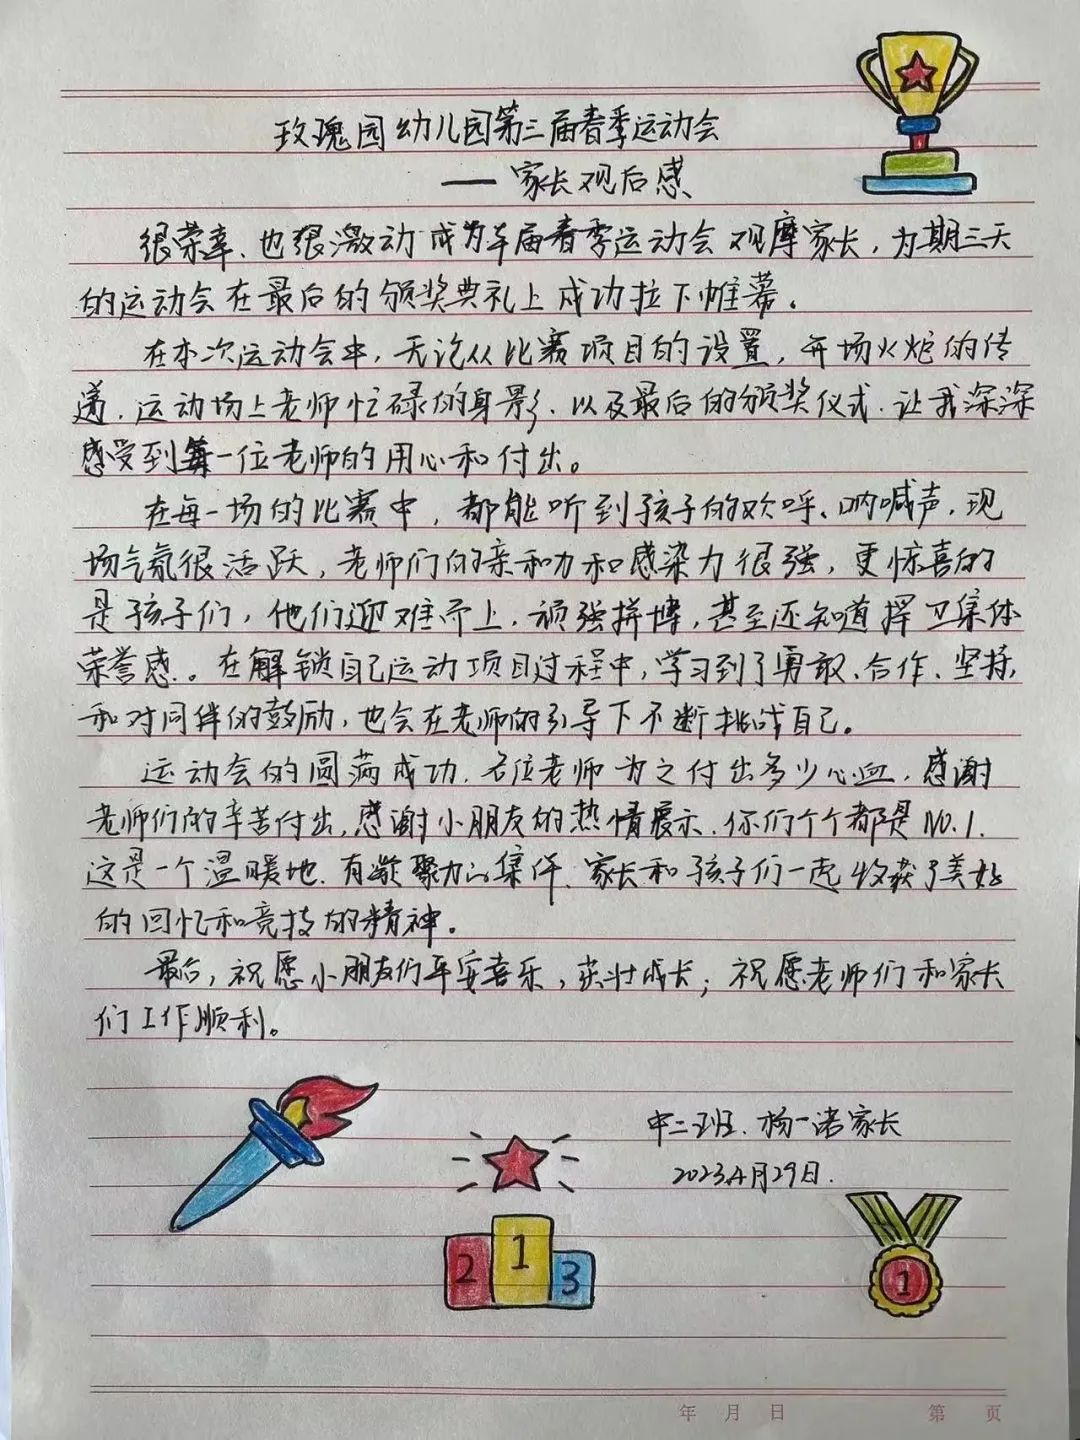 玫瑰园幼儿园第三届春季运动会
——家长观后感
很荣幸、也很激动成为本届春季运动会观摩家长，为期三天
的运动会在最后的颁奖典礼上成功拉下帷幕。
在本次运动会中，无论从比赛项目的设置，开场火炬的传
递、运动场上老师忙碌的身影、以及最后的颁奖仪式、让我深深
感受到每一位老师的用心和付出。
在每一场的比赛中，都能听到孩子的欢呼、呐喊声，现
场气氛很活跃，老师们的亲和力和感染力很强，更惊喜的
是孩子们，他们迎难而上，顽强拼搏，甚至还知道捍卫集体
荣誉感。在解锁自己运动项目过程中，学习到了勇敢、合作、坚持，
和对同伴的鼓励，也会在老师的引导下不断挑战自己。
运动会的圆满成功，各位老师为之付出多少心血，感谢
老师们的辛苦付出，感谢小朋友的热情展示，你们个个都是NO.1.
这是一个温暖地、有凝聚力的集体、家长和孩子们一起收获了美好
的回忆和竞技的精神。
最后，祝愿小朋友们平安喜乐，茁壮成长；祝愿老师们和家长
们工作顺利。
中二班、杨一诺家长
2023.4月29日.
2 1 3
1
年 月 日 第 页